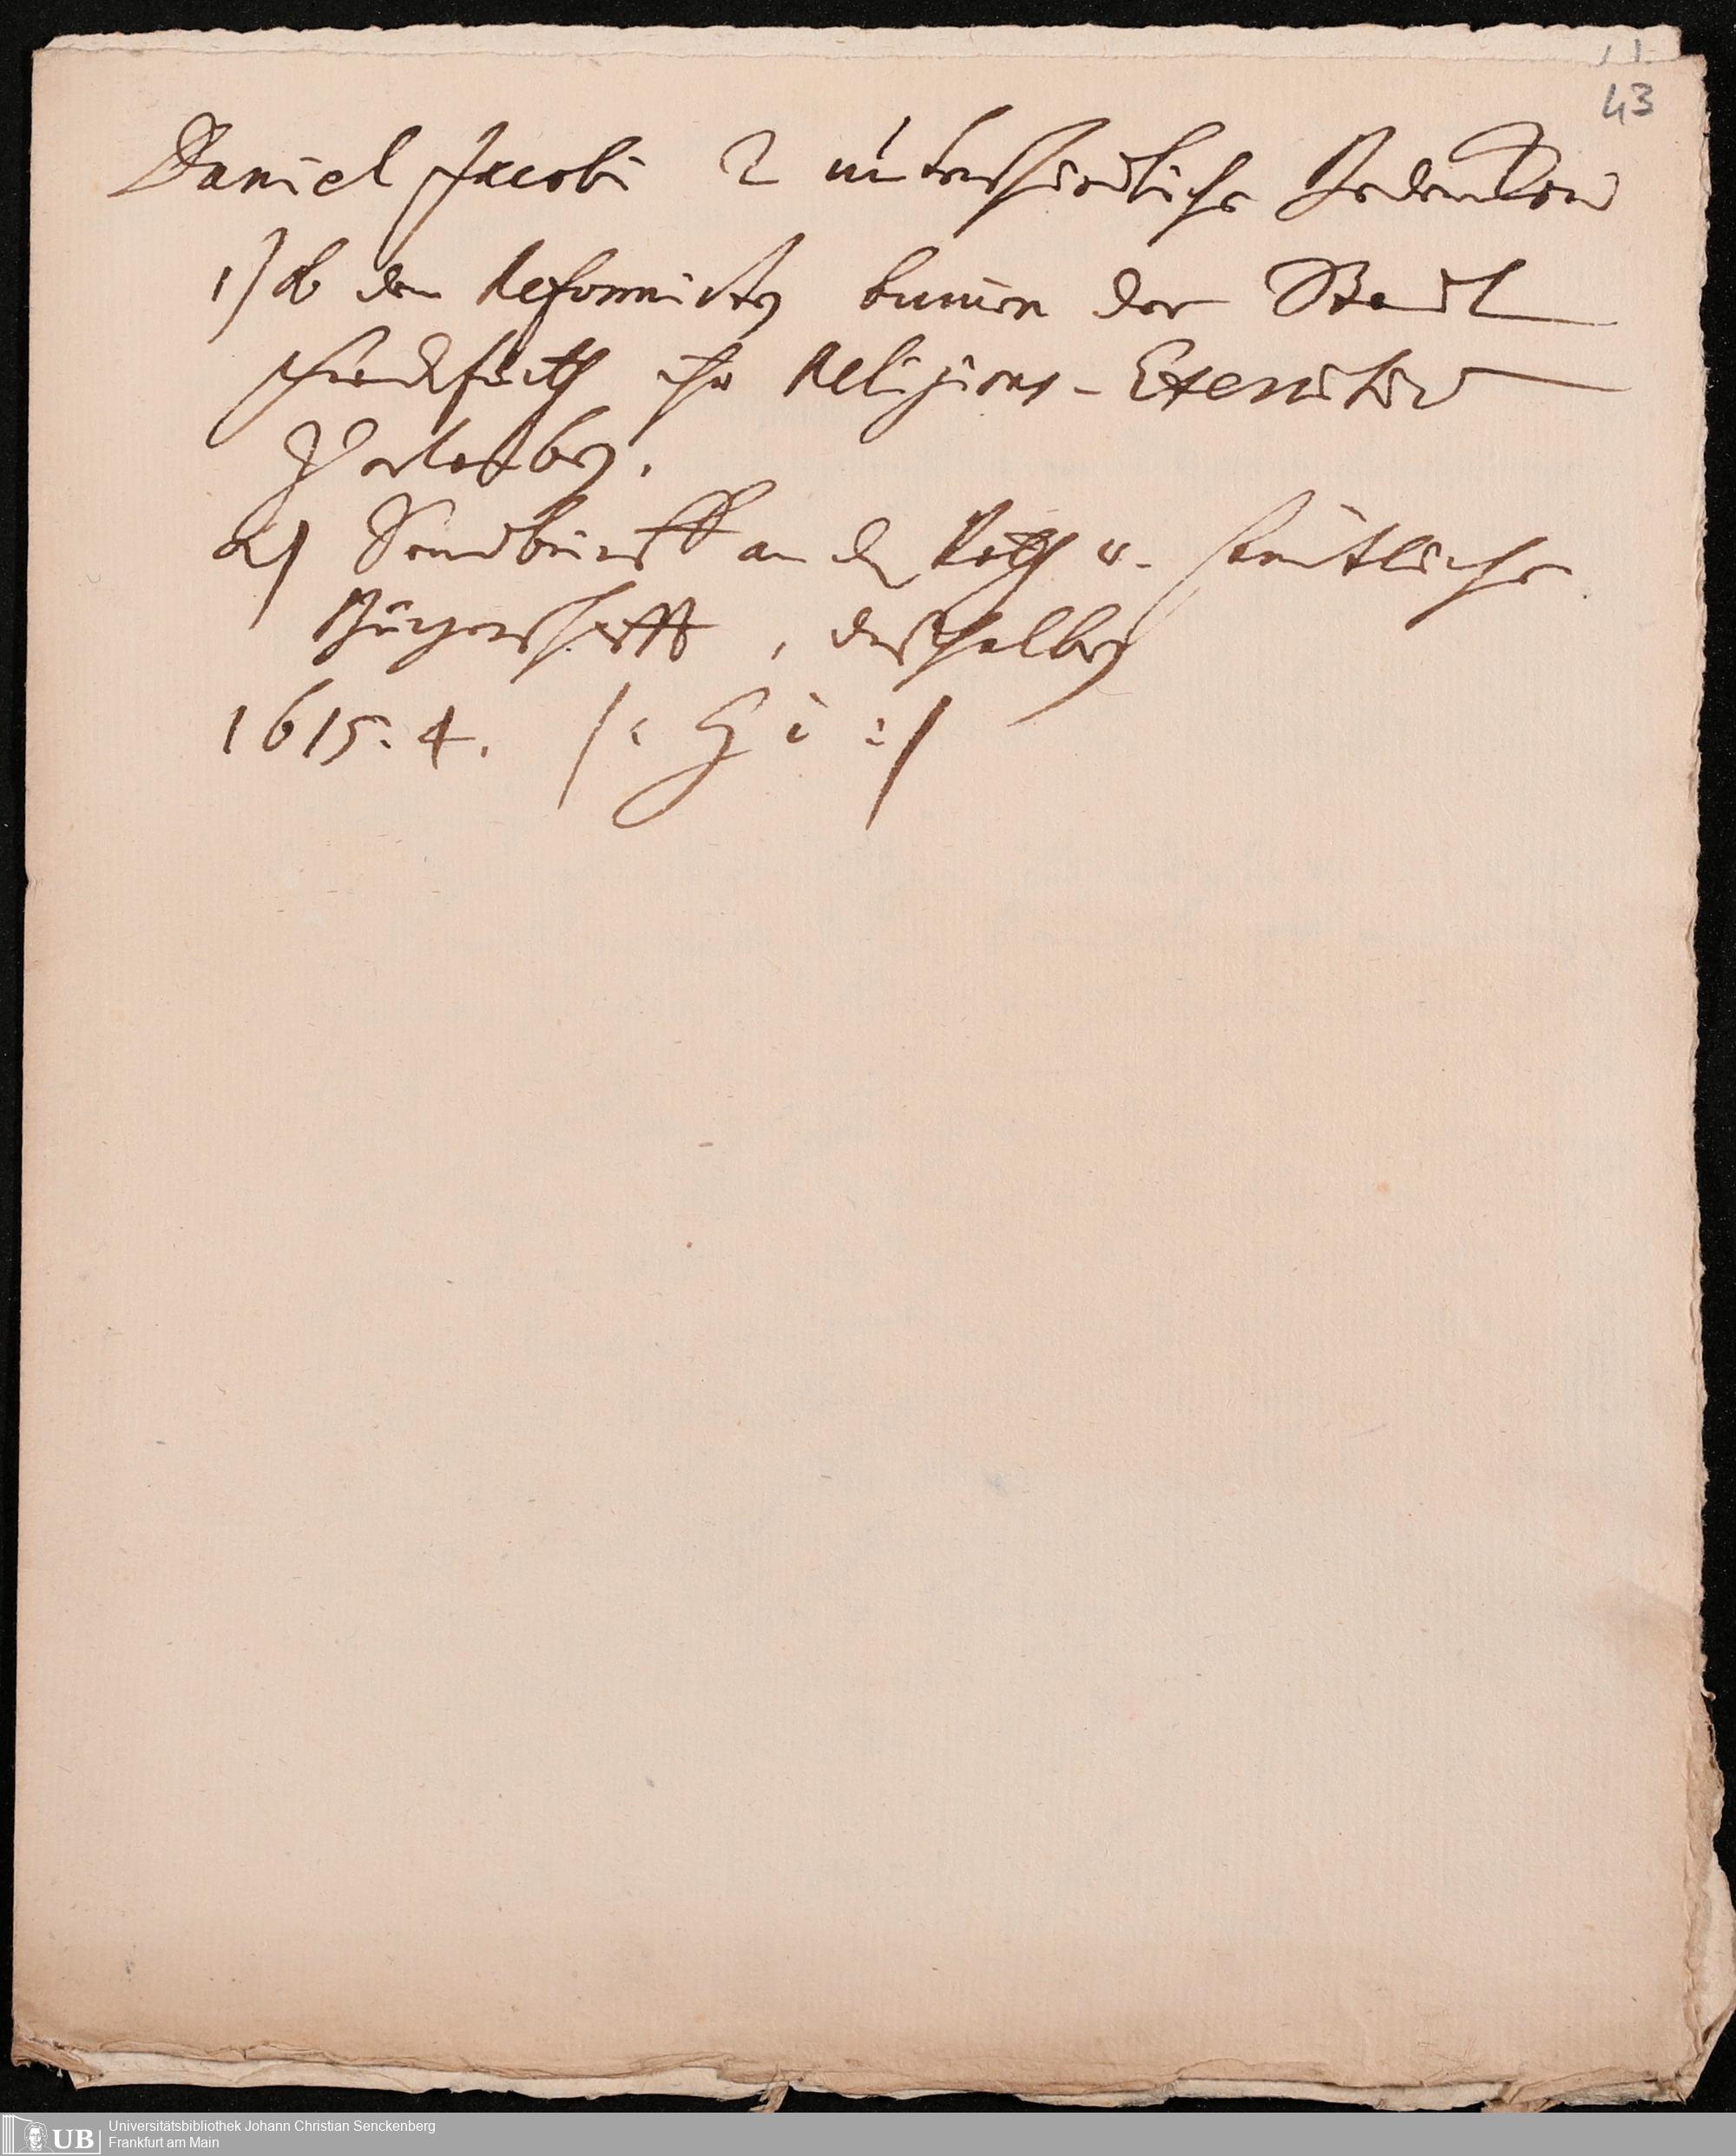 43
Daniel Jacobi 2 unterschiedliche Bedencken
1) Ob den Reformirten binnen der Stadt
Franckfurth ihr Religions-Exercitium
zu erlauben.
2) Sendbrieff an den Rath u. sämtliche
Bürgerschafft, deßhalben
1615. 4.
UB
Universitätsbibliothek Johann Christian Senckenberg
Frankfurt am Main